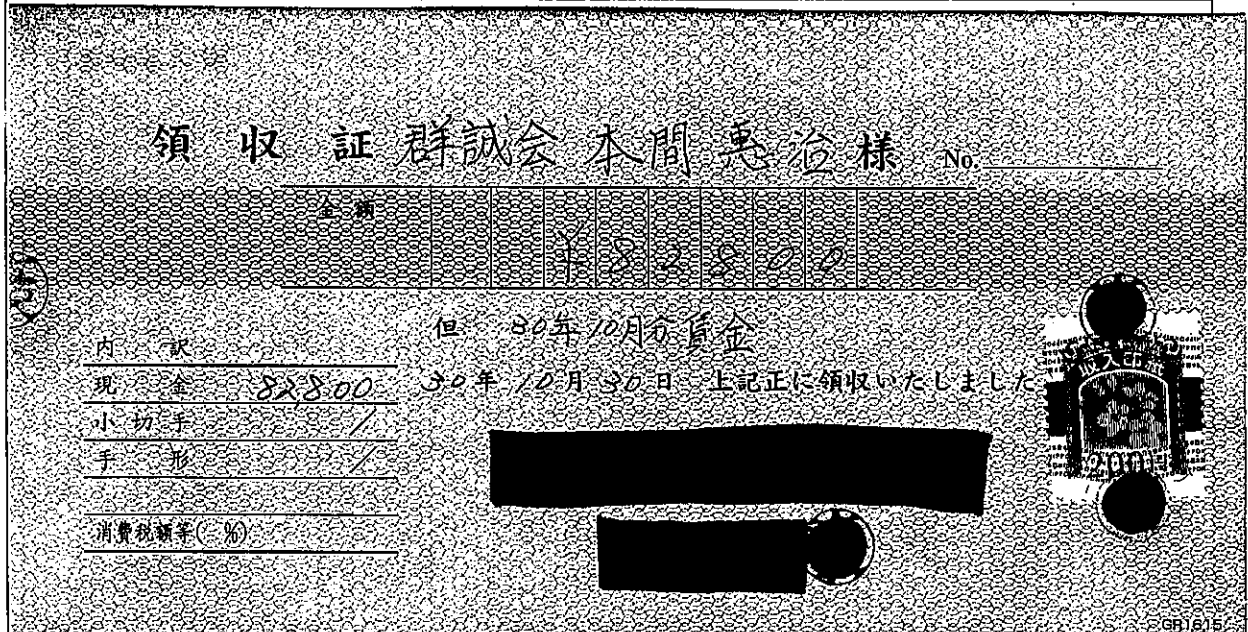 領収証 群誠会 本間恵治様 No.
金額 ¥82800
但 30年10月分賃金
30年10月30日 上記正に領収いたしました
内訳
現金 82,800
小切手 /
手形 /
消費税額等( %)
収入印紙
200円
GR1615